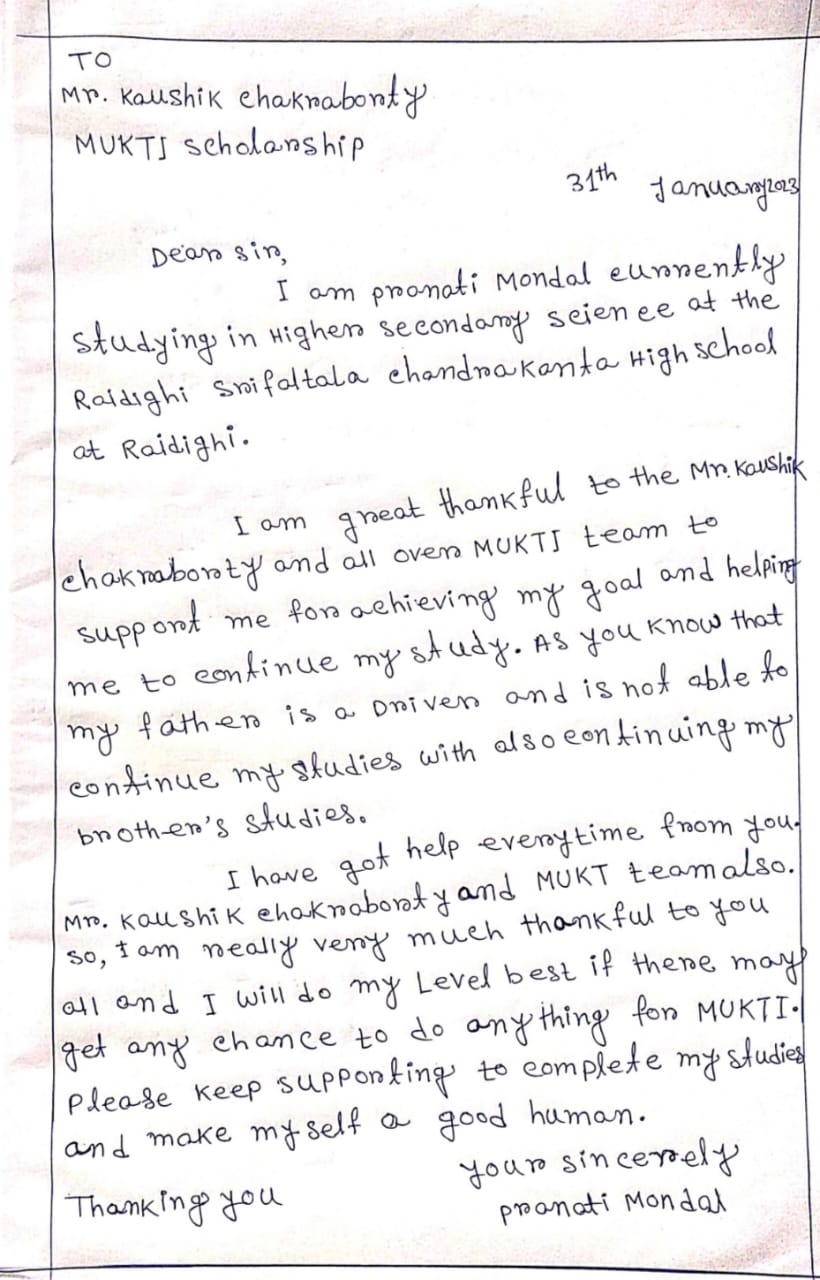 TO
Mr. Kaushik Chakraborty
MUKTI Scholarship
31th January2023
Dear sir,
I am pranati Mondal currently
studying in Higher secondary science at the
Raidighi Srifaltala chandrakanta High school
at Raidighi.
I am great thankful to the Mr. Kaushik
chakraborty and all over MUKTI team to
support me for achieving my goal and helping
me to continue my study. As you know that
my father is a Driver and is not able to
continue my studies with also continuing my
brother's studies.
I have got help everytime from you.
Mr. Kaushik chakraborty and MUKT team also.
so, I am really very much thankful to you
all and I will do my Level best if there may
get any chance to do anything for MUKTI.
Please keep supporting to complete my studies
and make myself a good human.
your sincerely
Thanking you
pranati Mondal